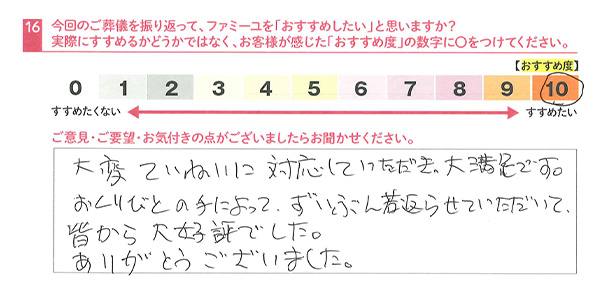 16 今回のご葬儀を振り返って、ファミーユを「おすすめしたい」と思いますか?
実際にすすめるかどうかではなく、お客様が感じた「おすすめ度」の数字に〇をつけてください。
【おすすめ度】
0 1 2 3 4 5 6 7 8 9 10
すすめたくない すすめたい
ご意見・ご要望・お気付きの点がございましたらお聞かせください。
大変ていねいに対応していただき、大満足です。
おくりびとの手によって、ずいぶん若返らせていただいて、
皆から大好評でした。
ありがとうございました。